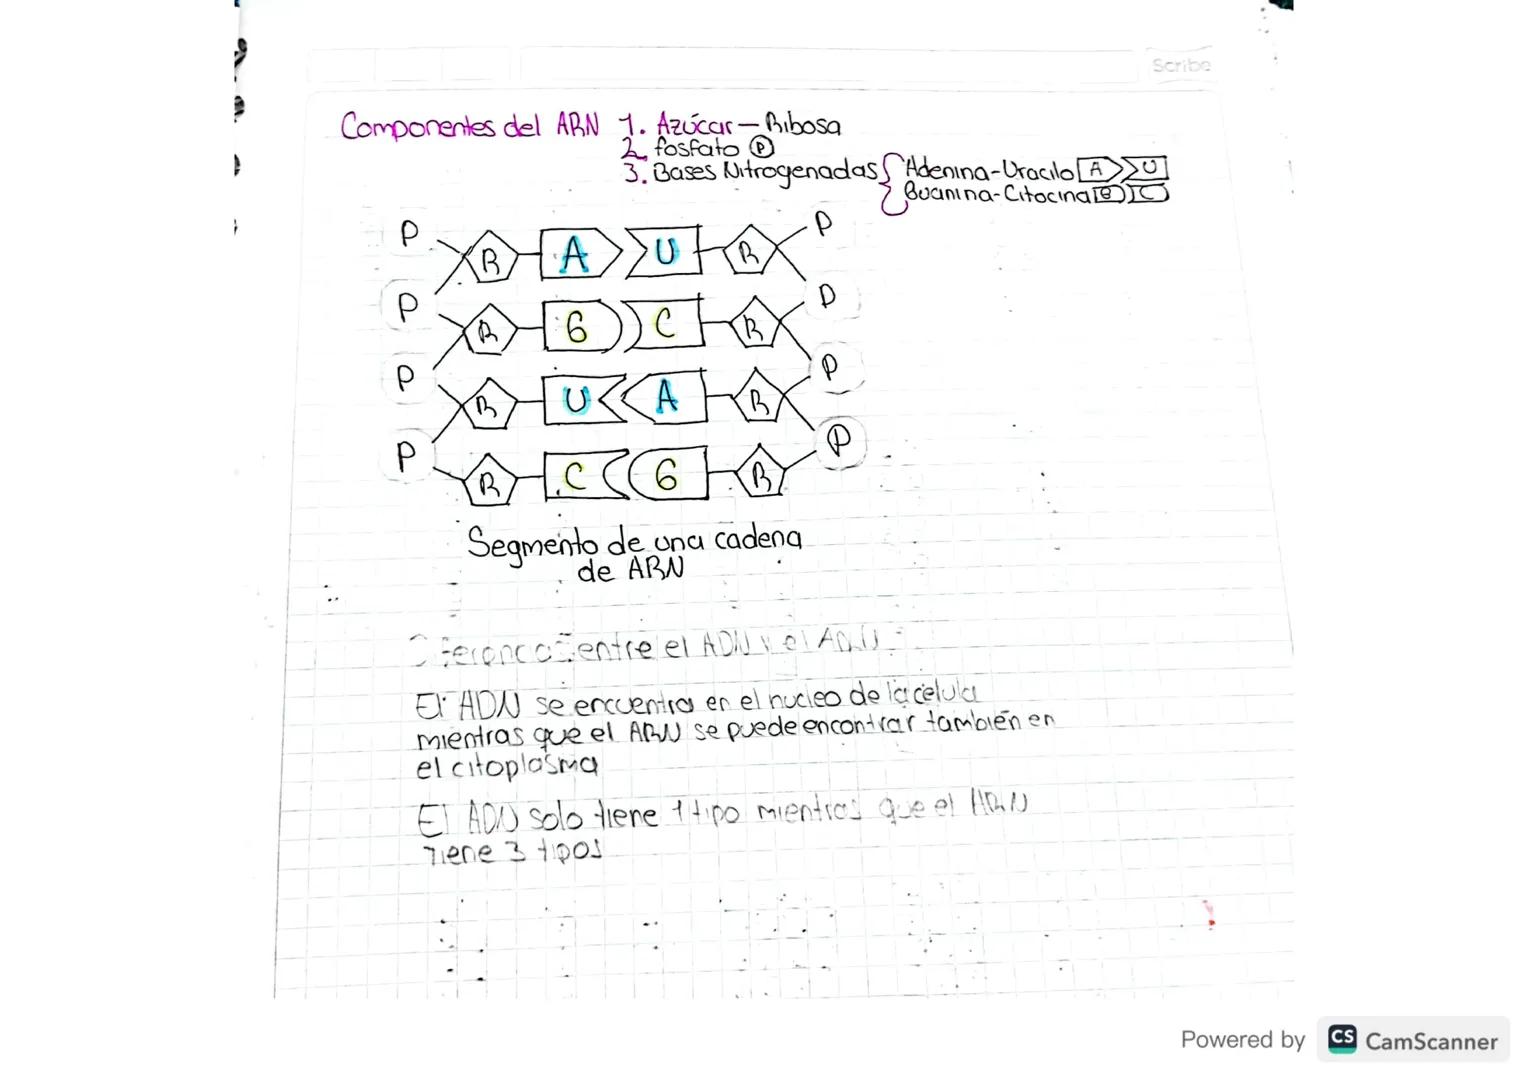 Scribe
Componentes del ARN 1. Azúcar - Ribosa
2. fosfato P
3. Bases Nitrogenadas { Adenina-Uracilo A U
Guanina-Citocina G C
P R A U R P
P R G C R P
P R U A R P
P R C G R P
Segmento de una cadena
de ARN
entre el ADN y el ARN
El ADN se encuentra en el nucleo de la celula
mientras que el ARN se puede encontrar también en
el citoplasma
El ADN solo tiene 1 tipo mientras que el ARN
tiene 3 tipos
Powered by CS CamScanner